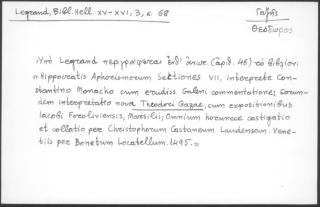 Legrand, Bibl. Hell. XV-XVI, 3, σ. 68
Γαζῆς
Θεόδωρος
Ὑπὸ Legrand περιγράφεται ἐνθ' ἀνωτ. (ἀριθ. 46) τὸ βιβλίον
« Hippocratis Aphorismorum Sectiones VII, interprete Con-
stantino Monacho cum erudiss. Galeni commentationes Eorun-
dem interpretatio nova Theodorei Gazae, cum expositionibus
Iacobi Foroliviensis, Marsilii; Omnium horumce castigatio
et collatio per Christophorum Castaneum Laudensem. Vene-
tiis per Bonetum Locatellum. 1495. »